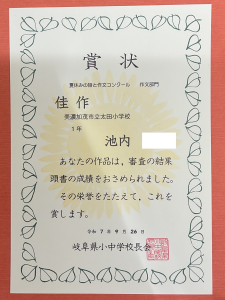 賞状
夏休みの絵と作文コンクール 作文部門
佳作
美濃加茂市立太田小学校
1年
池内
あなたの作品は、審査の結果
頭書の成績をおさめられました。
その栄誉をたたえて、これを
賞します。
令和7年9月26日
岐阜県小中学校長会